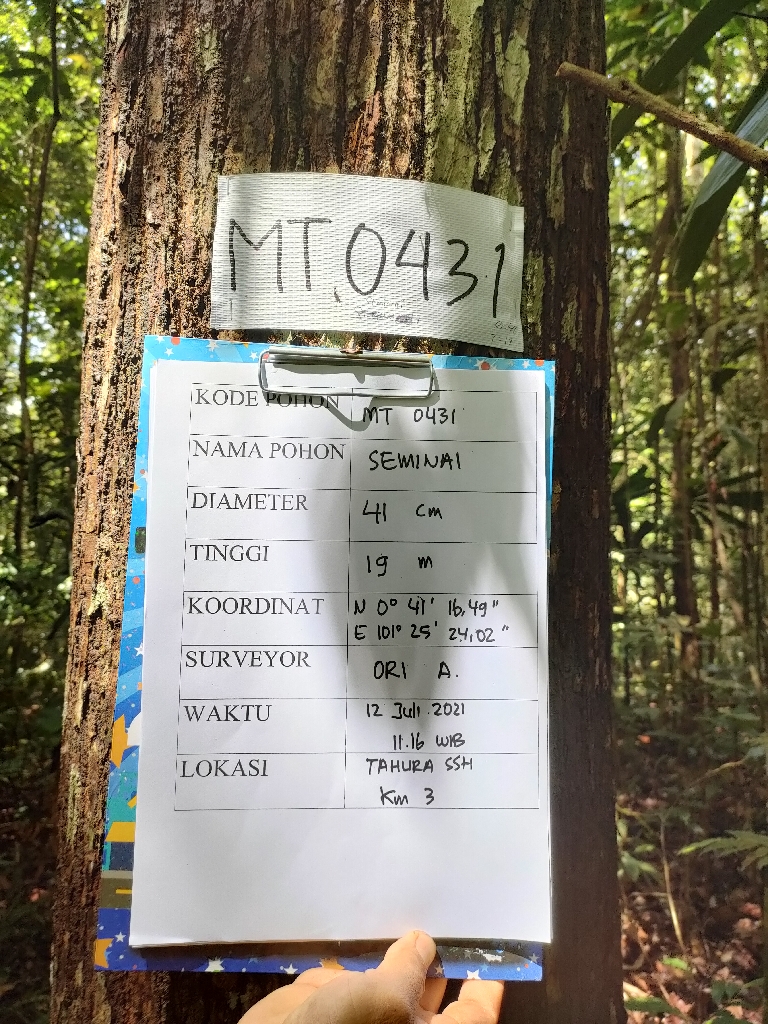 MT.0431
KODE POHON MT 0431
NAMA POHON SEMINAI
DIAMETER 41 cm
TINGGI 19 m
KOORDINAT N 0° 41' 16,49"
E 101° 25' 24,02"
SURVEYOR ORI A.
WAKTU 12 Juli 2021
11.16 WIB
LOKASI TAHURA SSH
Km 3